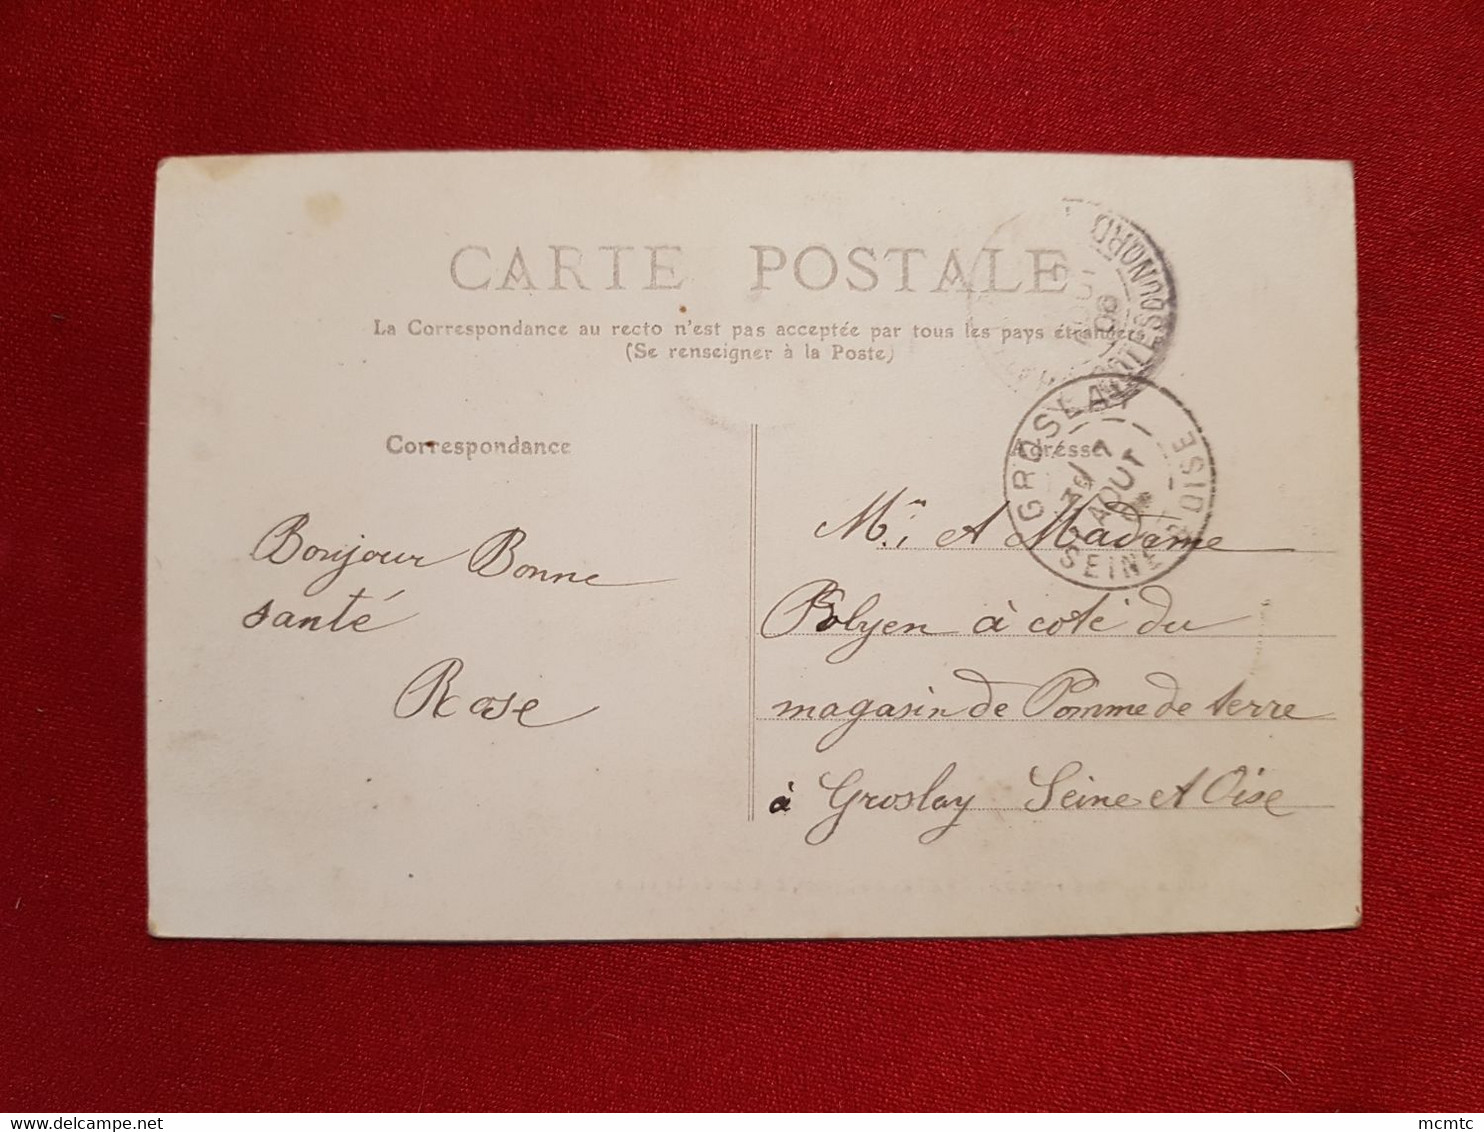 CARTE POSTALE
La Correspondance au recto n'est pas acceptée par tous les pays étrangers
(Se renseigner à la Poste)
Correspondance
Adresse
GROSLAY
AOUT
SEINE ET OISE
Bonjour Bonne
santé
Rose
Mr. et Madame
à coté du
magasin de Pomme de terre
à Groslay Seine et Oise
mcmtc